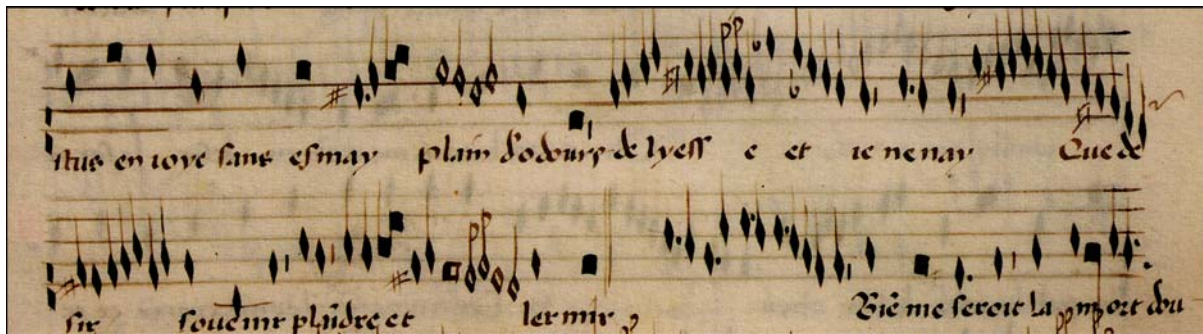 itus en ioye sans esmay plain dodours de lyess e et ie nenay Que de
sir souvenir plaindre et lermir
Bie me seroit la mort dou